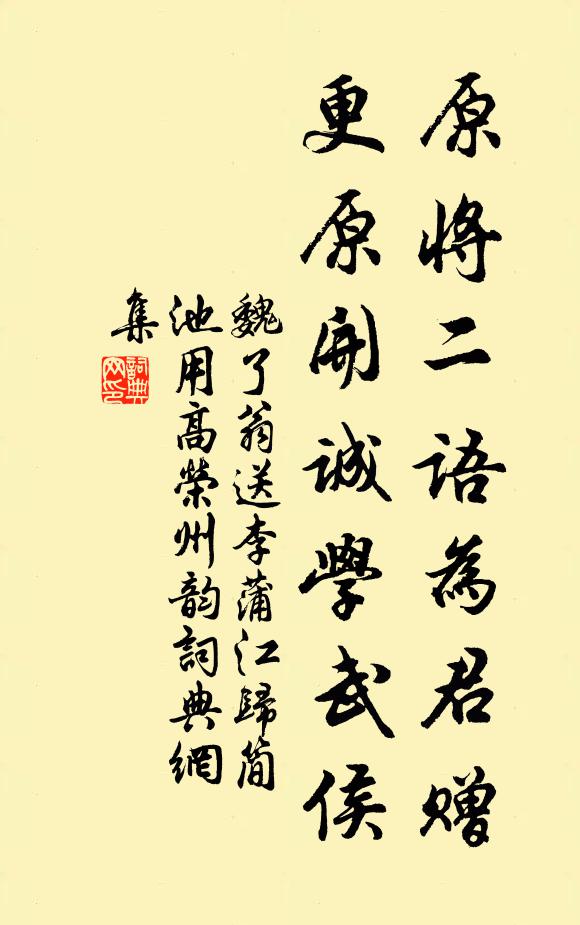 原將二語為君贈
更原開誠學武侯
魏了翁送李蒲江歸簡
池用高榮州韵詞典網
集
詞典
网印